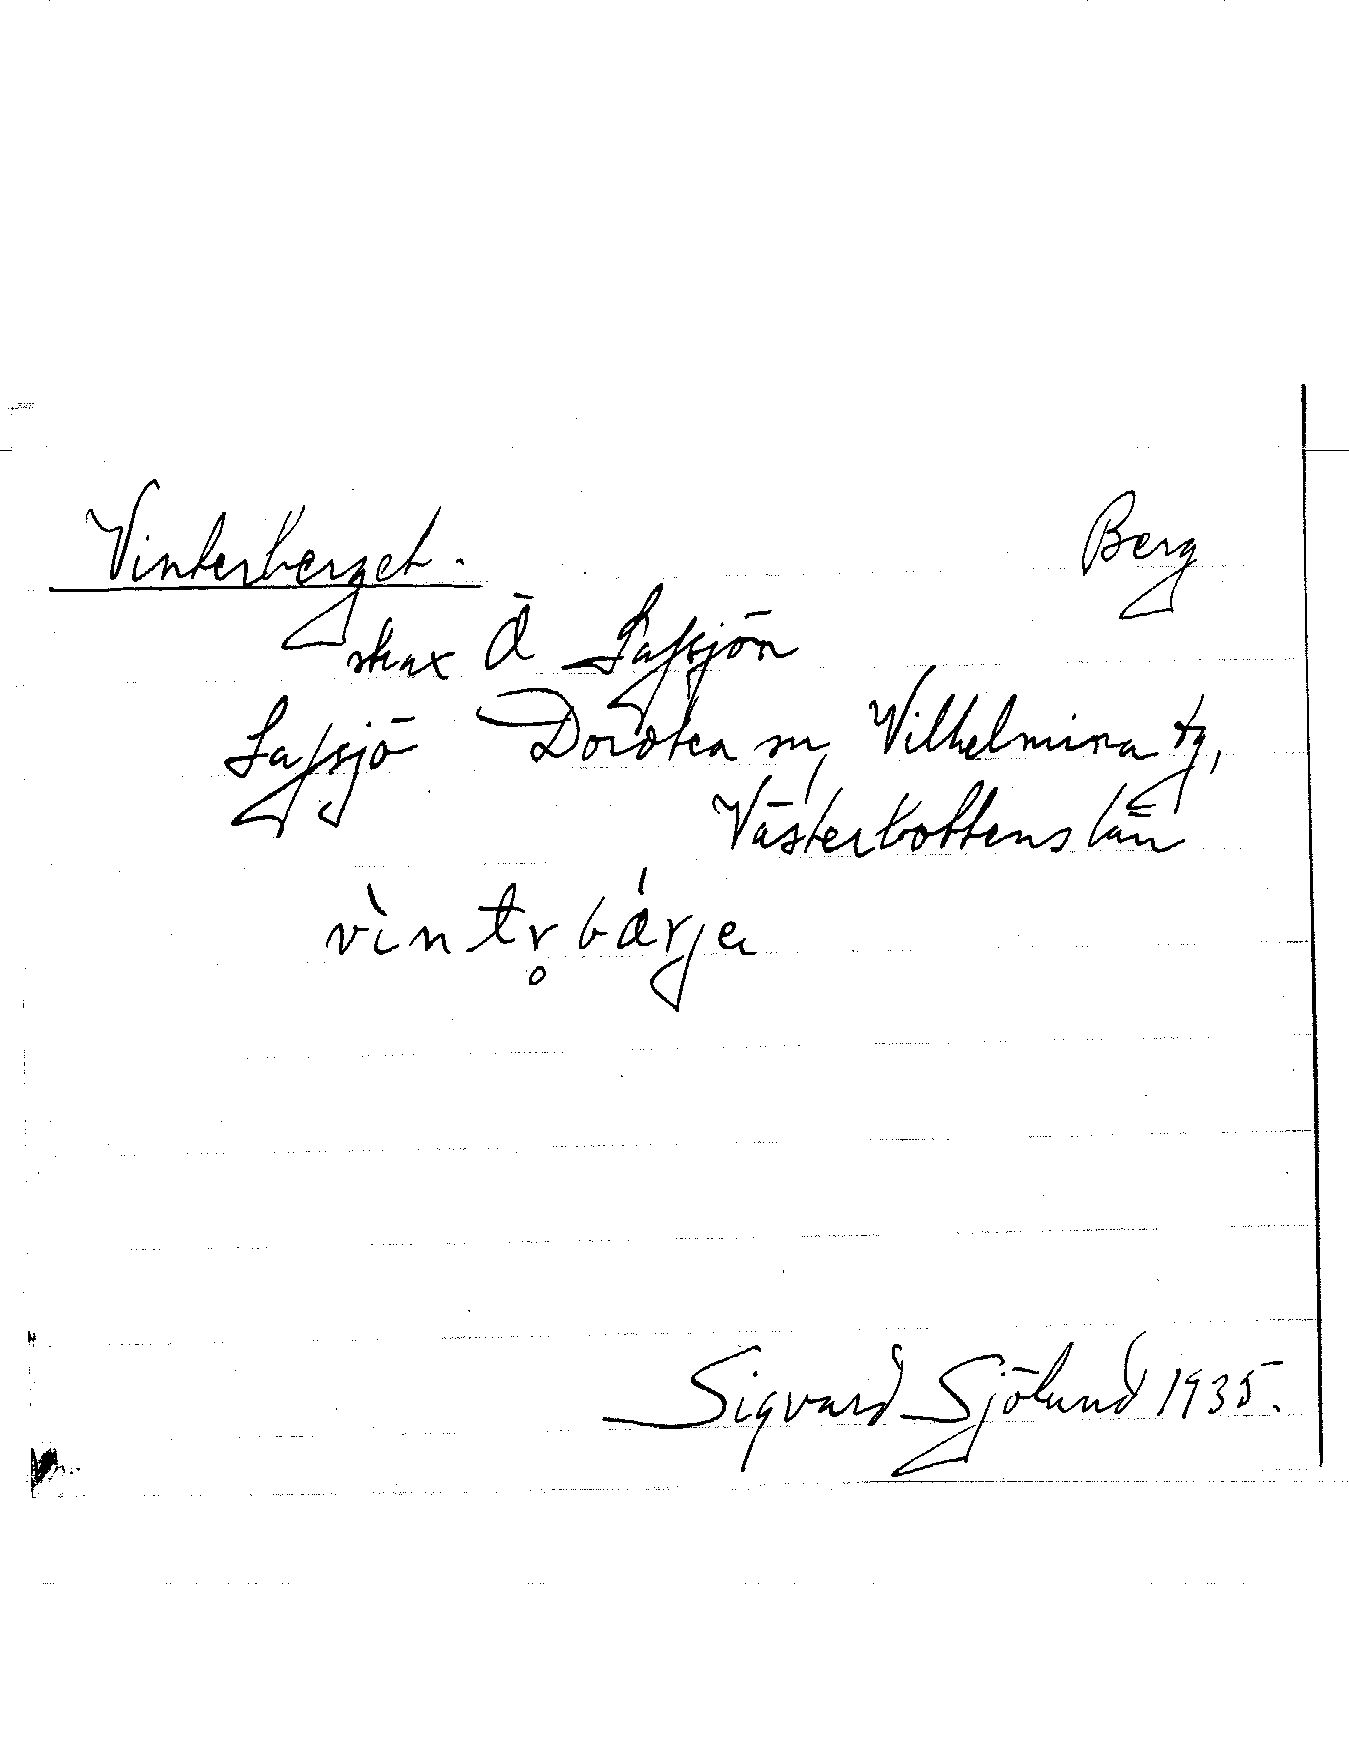 Vinterberget. Berg
Ö Lafsjön
Lafsjö Dorotea sn, Vilhelmina tg,
Västerbottens län
vìntr̥bárja
Sigvard Sjölund 1935.